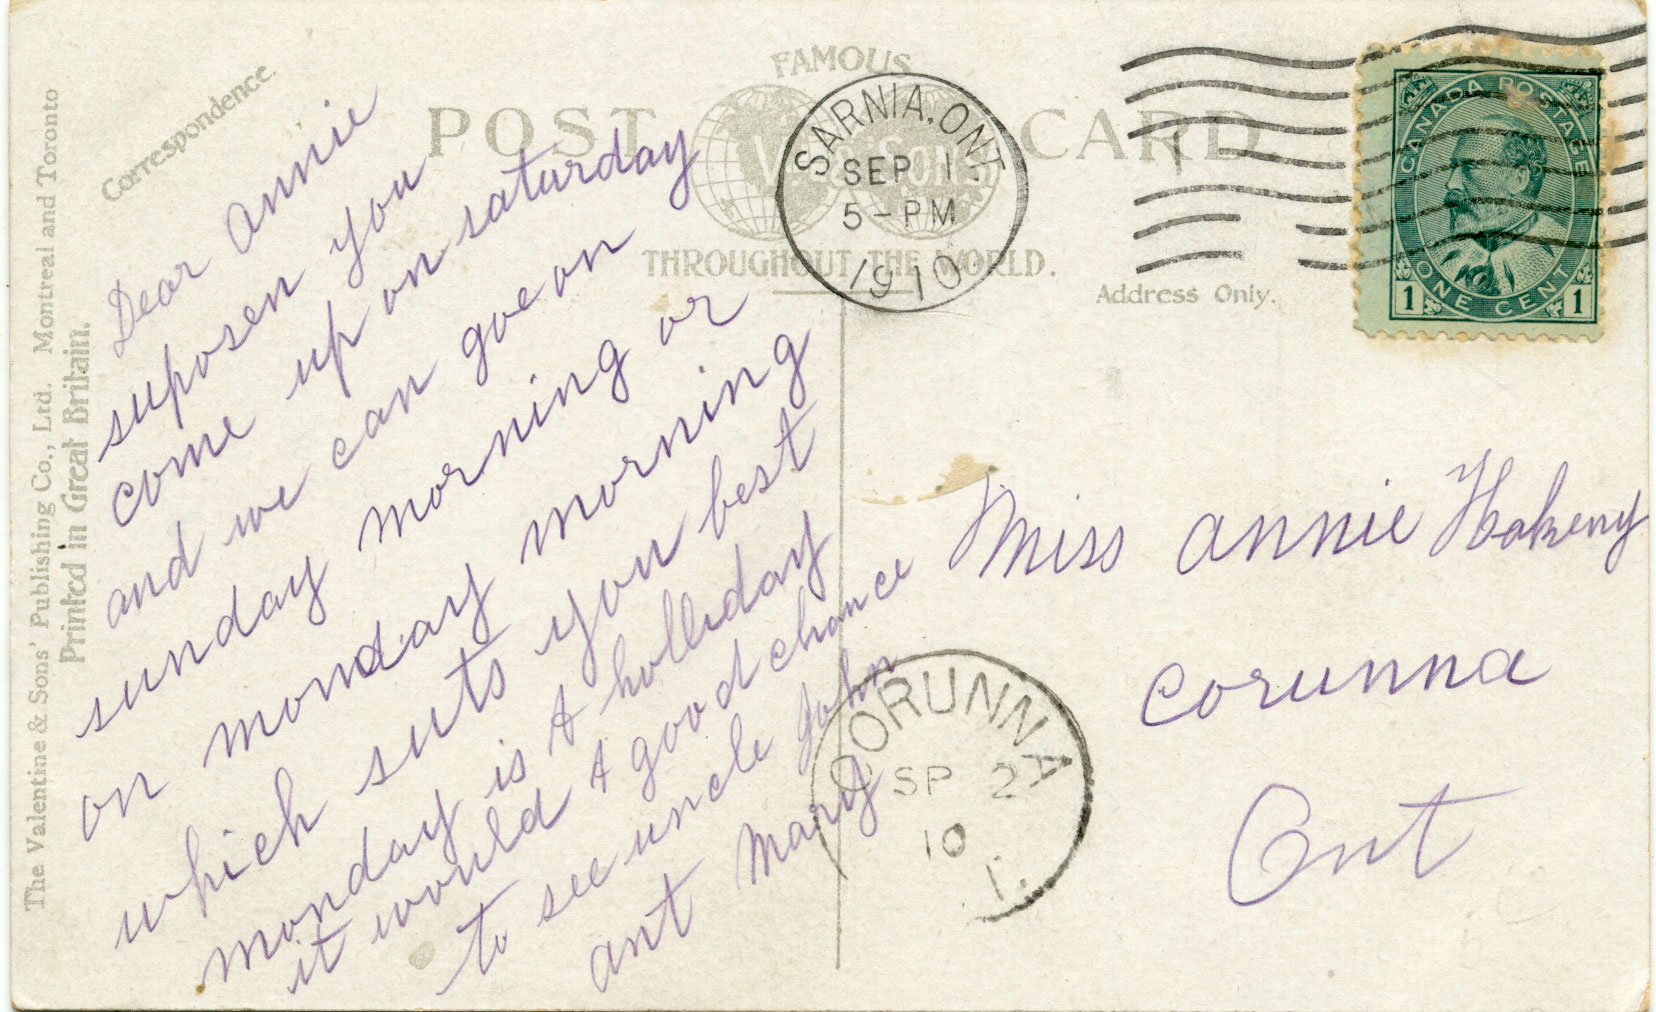 The Valentine & Sons' Publishing Co., Ltd. Montreal and Toronto
Printed in Great Britain.
Correspondence.
FAMOUS
POST CARD
THROUGHOUT THE WORLD.
Address Only.
SARNIA, ONT.
SEP 1
5-PM
1910
CANADA POSTAGE
1 ONE CENT 1
Dear annie
suposen you
come up on saturday
and we can goe on
sunday morning or
on monday morning
which suts you best
monday is A holliday
it would A good chance
to see uncle John
ant Mary
Miss annie
corunna
Ont
CORUNNA
SP 2
10